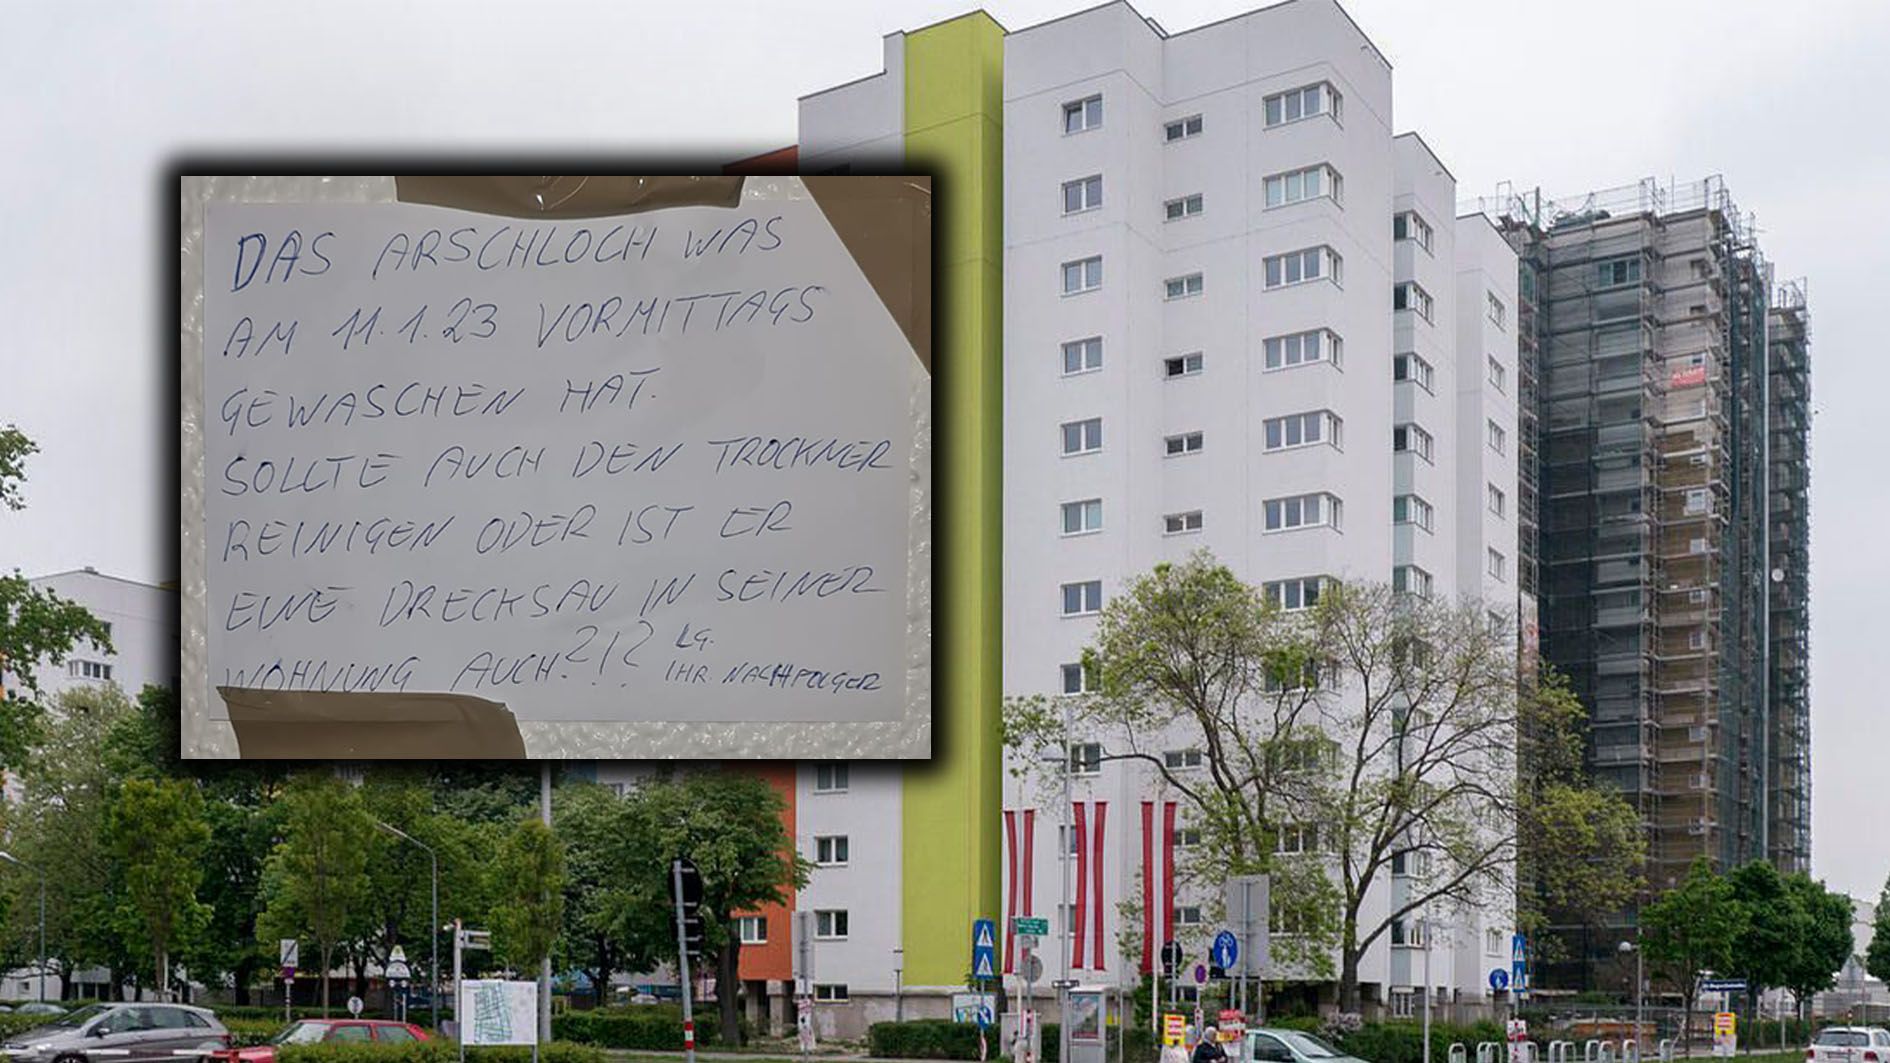 DAS ARSCHLOCH WAS
AM 11.1.23 VORMITTAGS
GEWASCHEN HAT.
SOLLTE AUCH DEN TROCKNER
REINIGEN ODER IST ER
EINE DRECKSAU IN SEINER
WOHNUNG AUCH?!? LG.
IHR NACHFOLGER